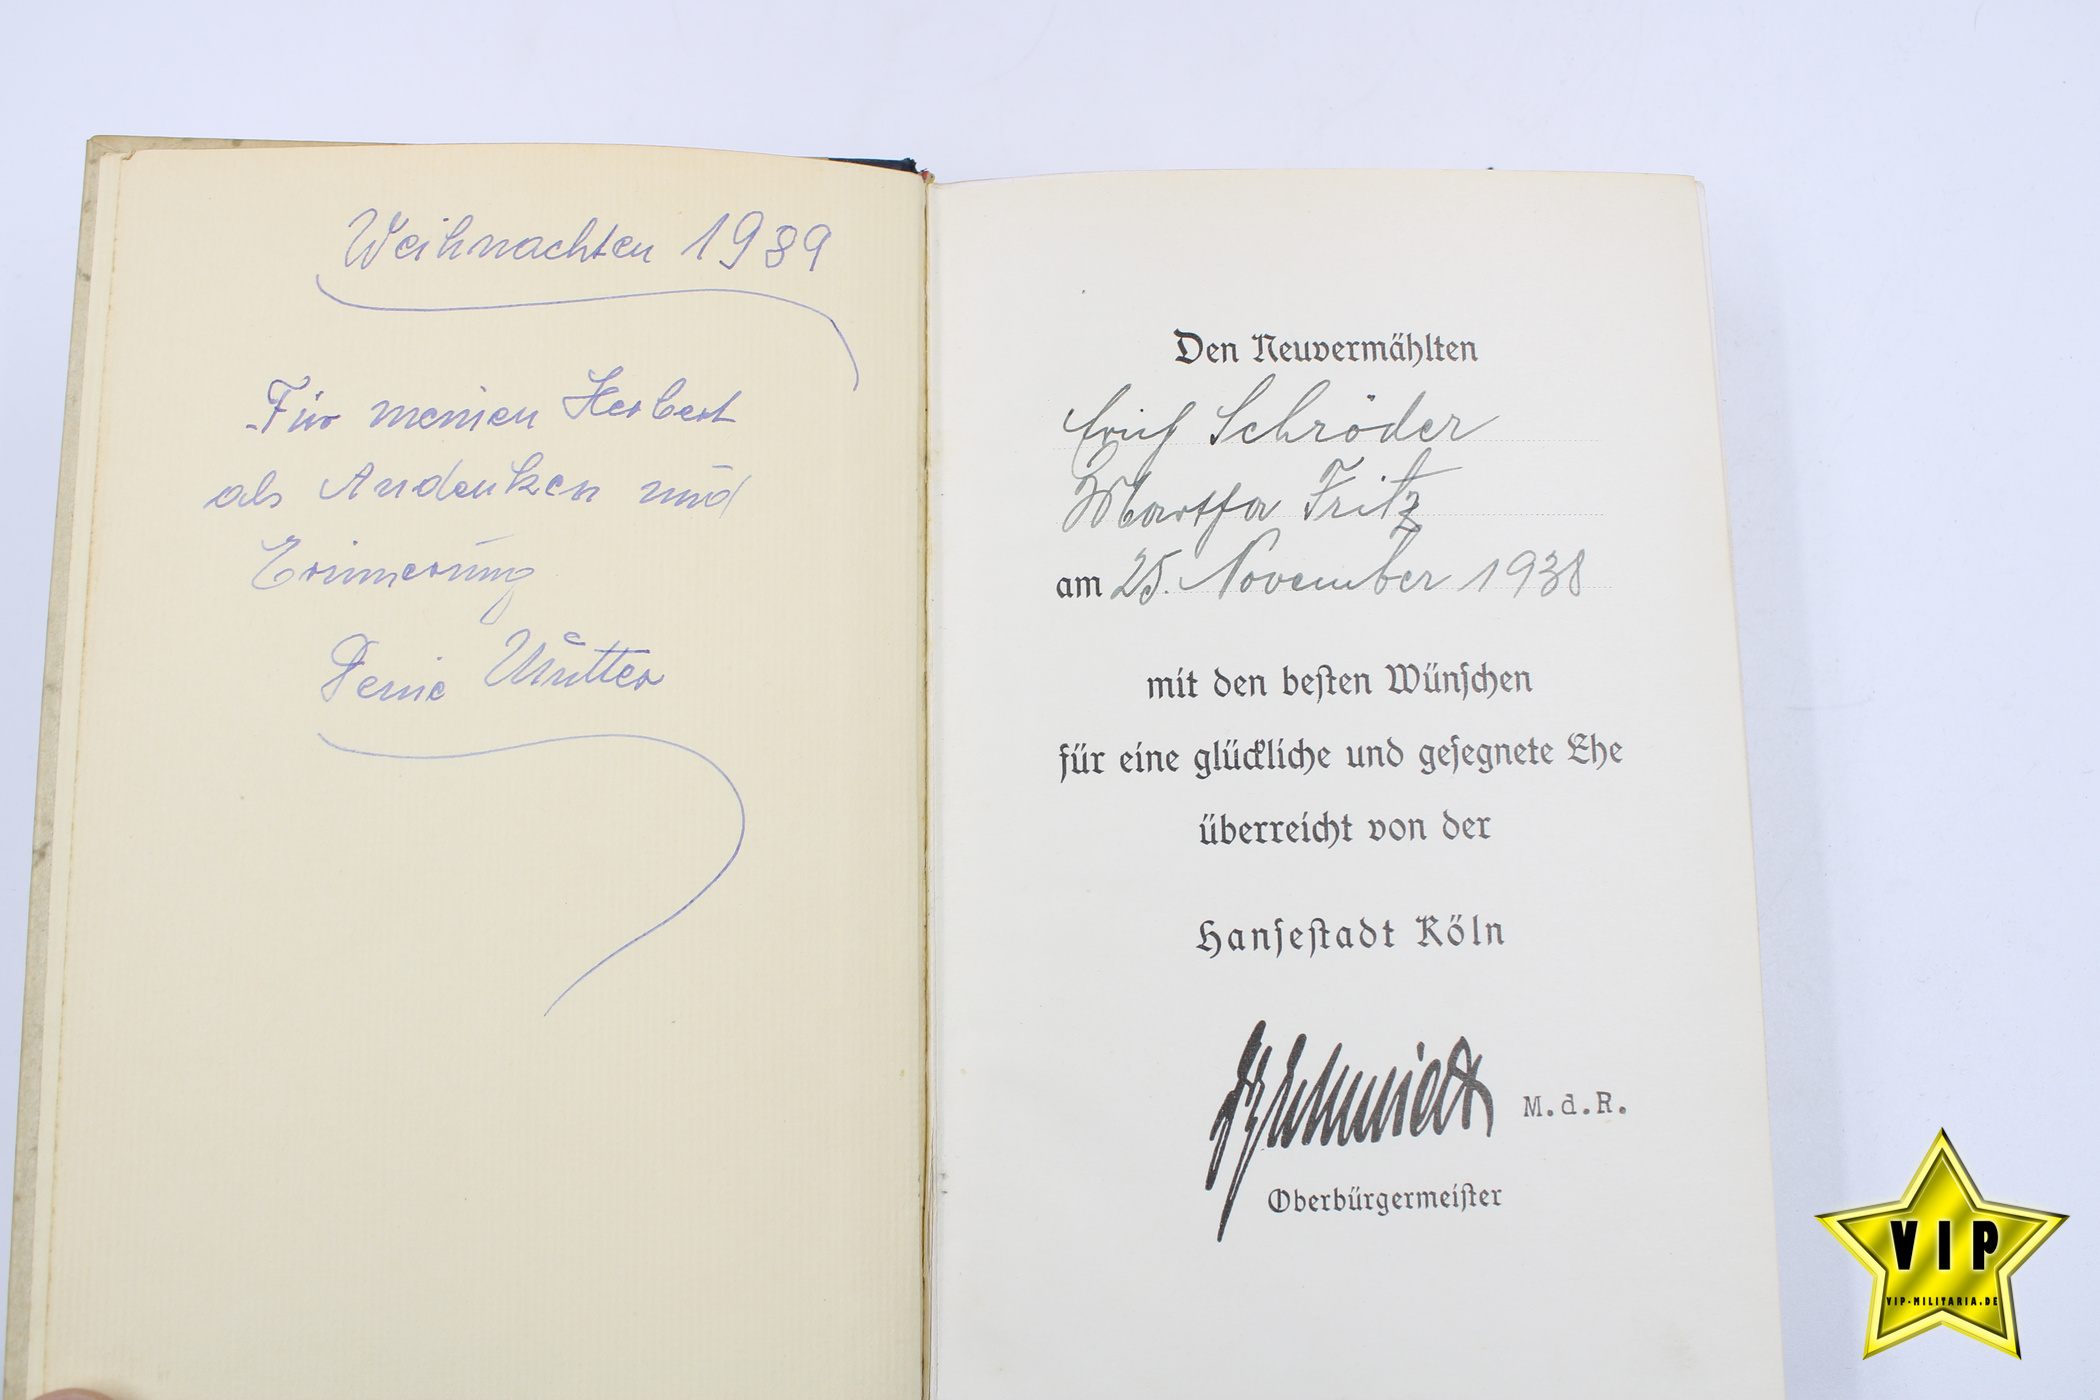 Weihnachten 1989
Für meinen Herbert
als Andenken und
Erinnerung
Deine Mutter
Den Neuvermählten
Erich Schröder
Martha Fritz
am 25. November 1938
mit den besten Wünschen
für eine glückliche und gesegnete Ehe
überreicht von der
Hansestadt Köln
Schmidt M.d.R.
Oberbürgermeister
VIP
VIP-MILITARIA.DE